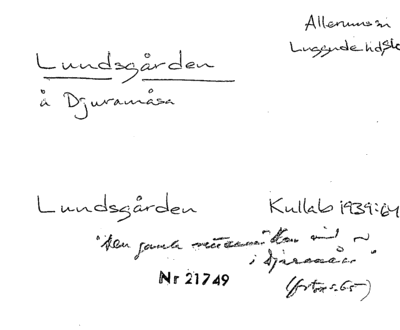 Allerums sn
Luggude hd Skå
Lundsgården
å Djuramåsa
Lundsgården Kullab 1939:64
"Den gamla vid ~
i Djuramåsa"
Nr 21749
(forts s. 65)